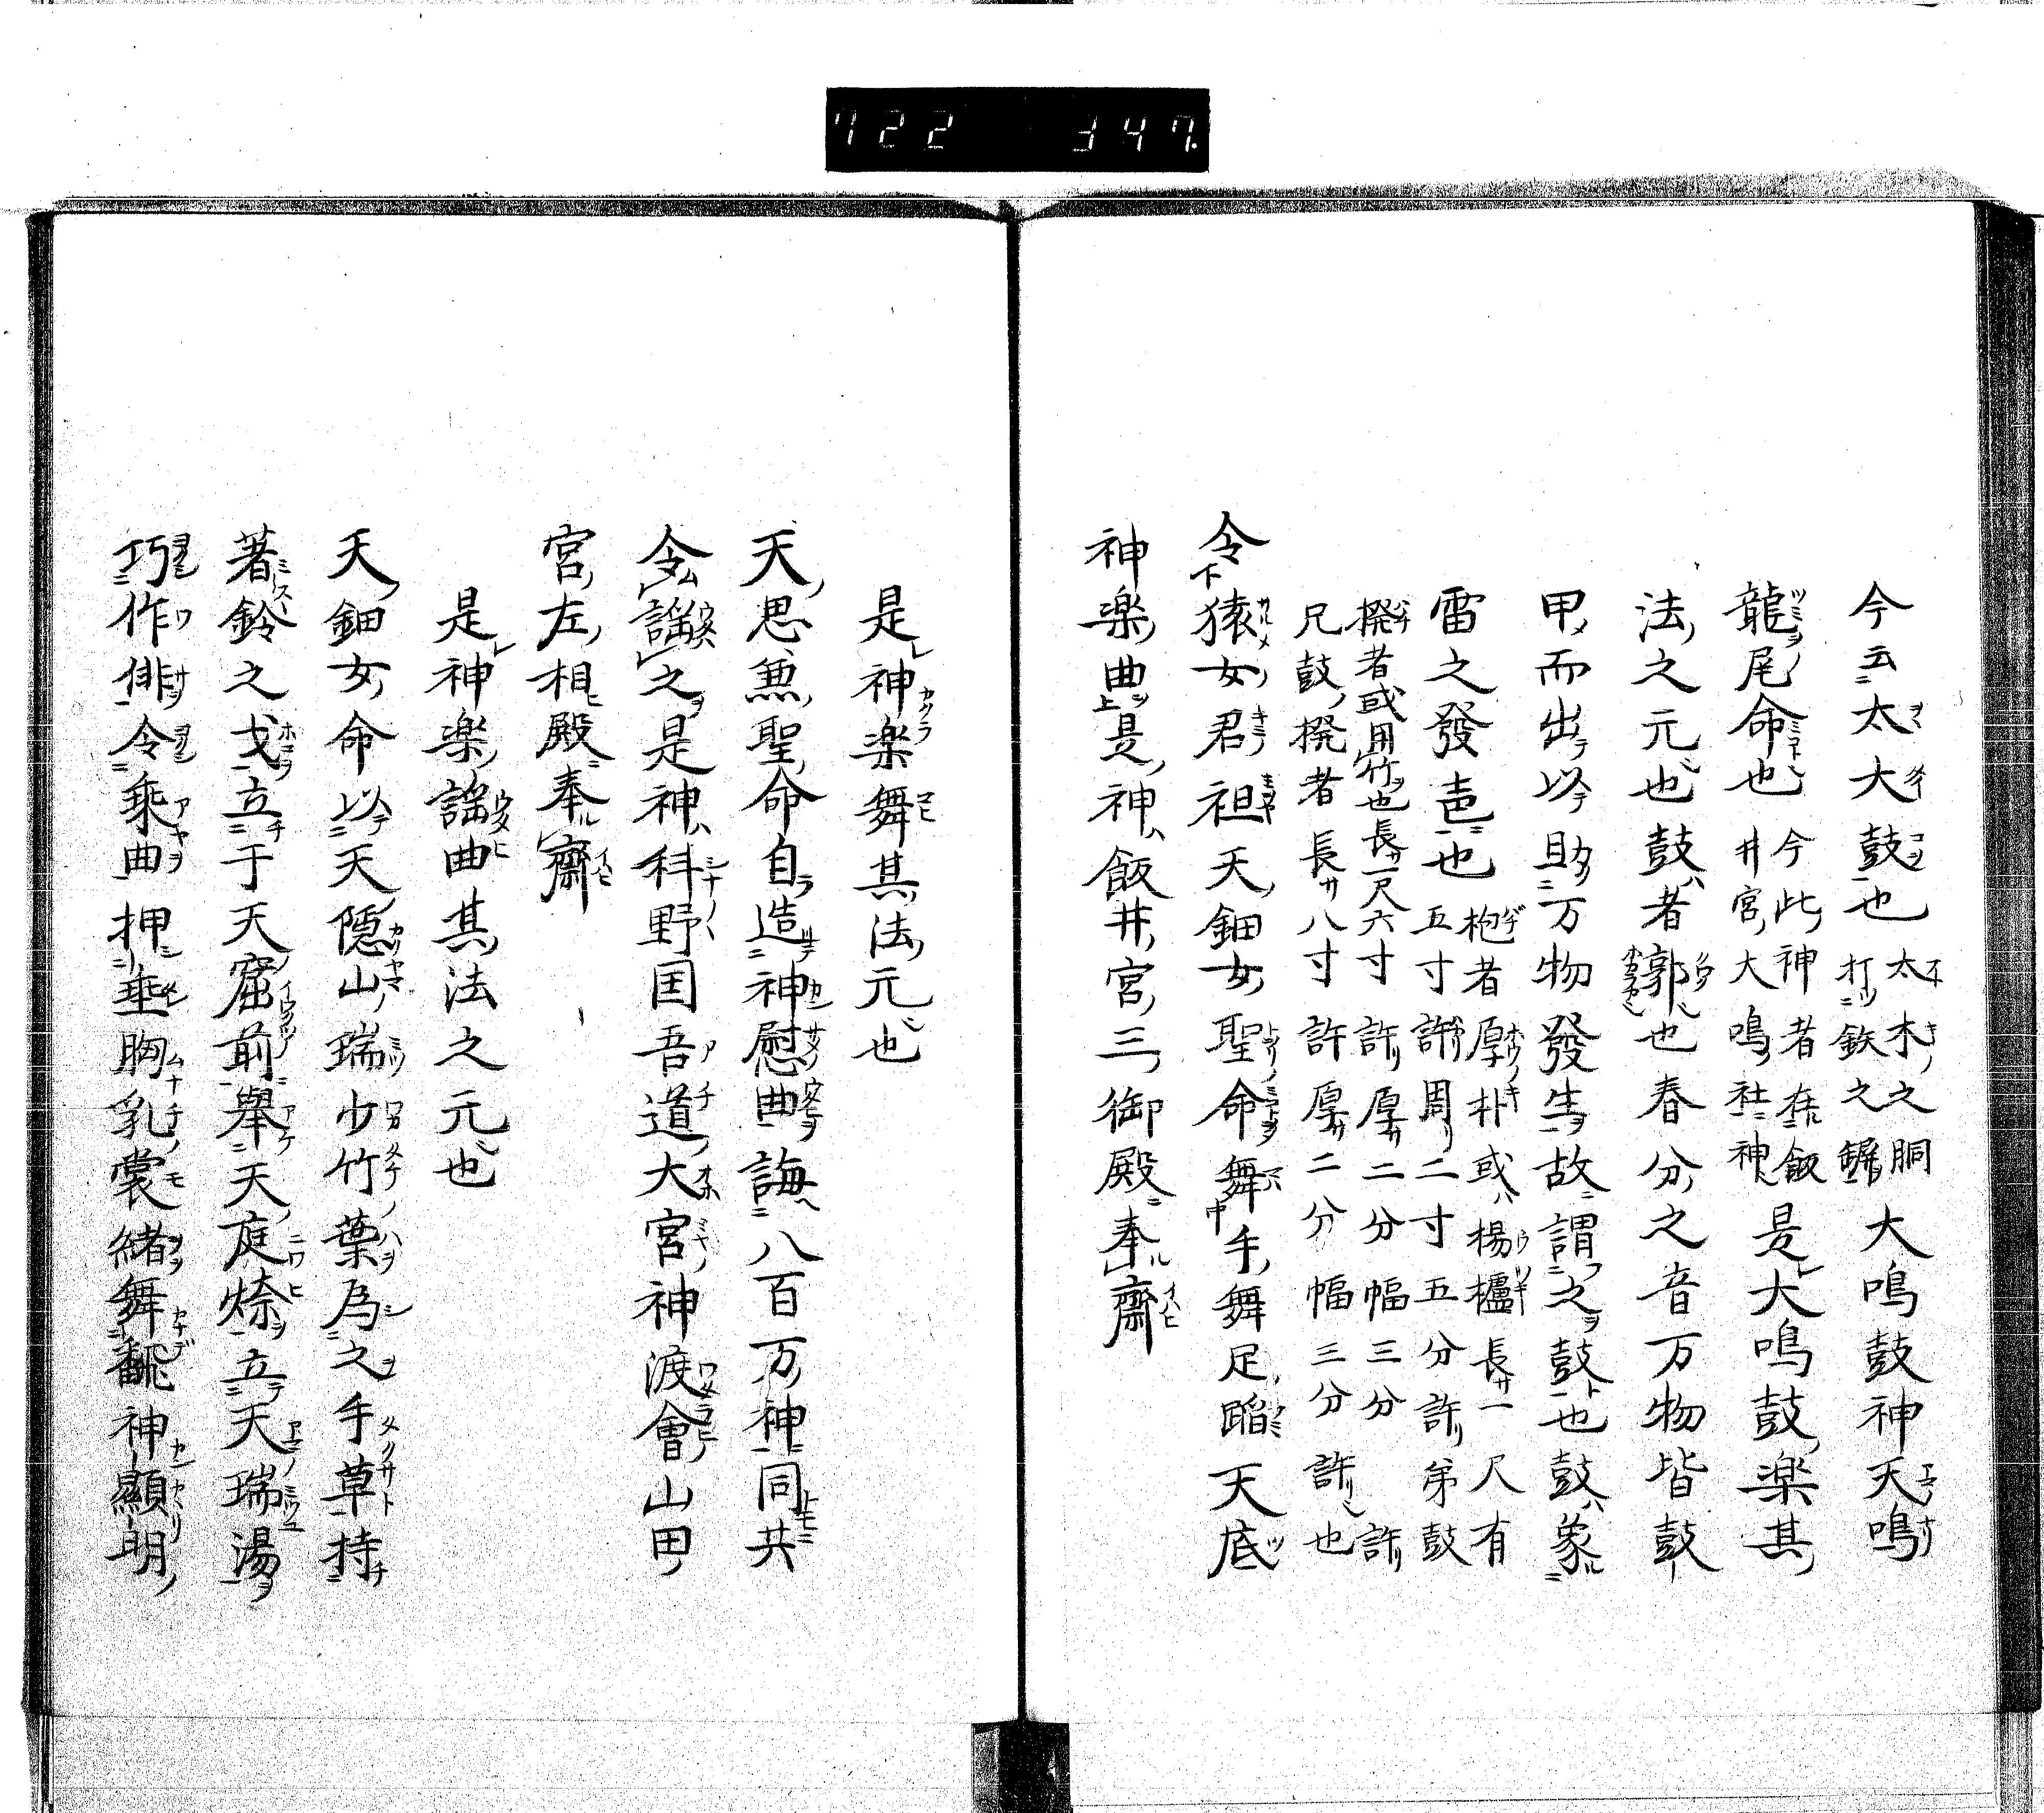 722 347.
今云太大鼓也 太木之胴 打鉄之鋲 大鳴鼓神天鳴
龍尾命也 今此神者在飯 井宮大鳴社神 是大鳴鼓楽其
法之元也鼓者郭也春分之音万物皆鼓
甲而出以助万物發生故謂之鼓也鼓象
雷之發声也 枹者厚朴或楊櫨長一尺有 五寸許周二寸五分許弟鼓
撥者或用竹也長一尺六寸許厚二分幅三分許
兄鼓撥者長八寸許厚二分幅三分許也
令猿女君祖天鈿女聖命舞手舞足蹈天底
神楽曲是神飯井宮三御殿奉齋
是神楽舞其法元也
天思兼聖命自造神慰曲誨八百万神同共
令謡之是神科野国吾道大宮神渡會山田
宮左相殿奉齋
是神楽謡曲其法之元也
天鈿女命以天隠山瑞少竹葉為之手草持
著鈴之戈立于天窟前舉天庭燎立天瑞湯
巧作俳令乗曲押垂胸乳裳緒舞飜神顯明